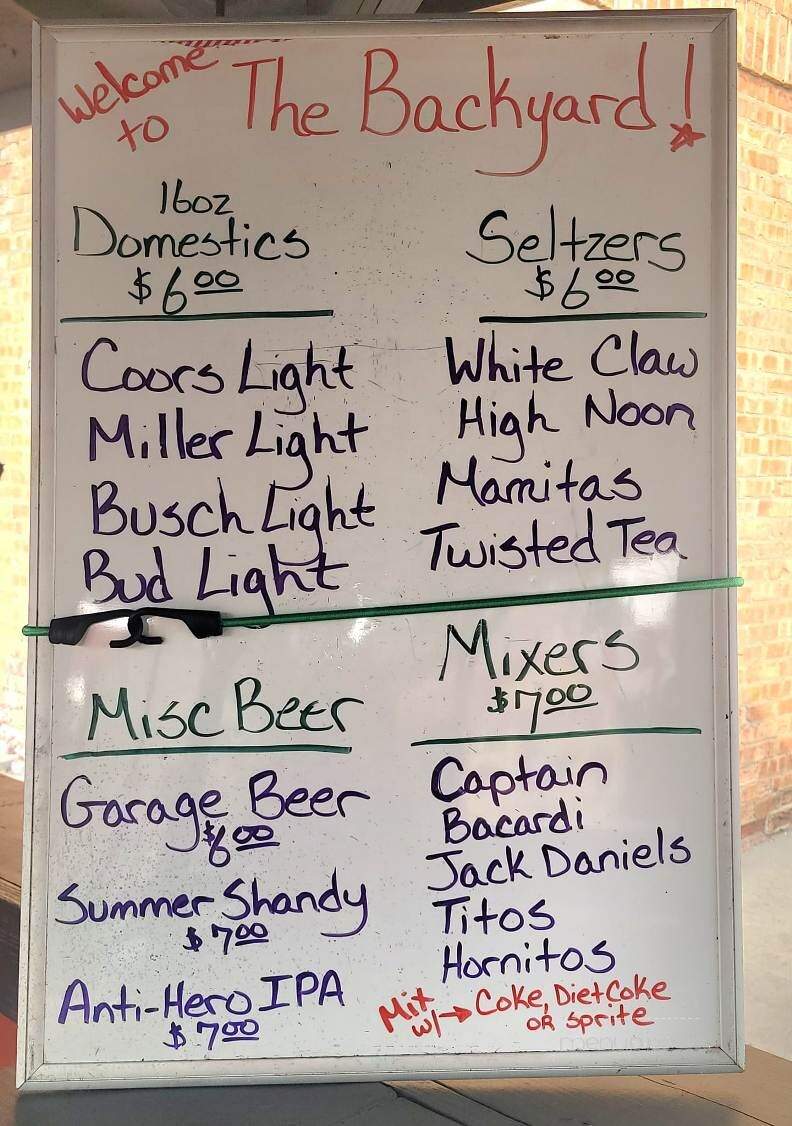 Welcome to The Backyard!
16oz
Domestics
$6.00
Coors Light
Miller Light
Busch Light
Bud Light
Seltzers
$6.00
White Claw
High Noon
Mamitas
Twisted Tea
Misc Beer
Garage Beer
$6.00
Summer Shandy
$7.00
Anti-Hero IPA
$7.00
Mixers
$7.00
Captain
Bacardi
Jack Daniels
Titos
Hornitos
Mit w/→ Coke, Diet Coke
OR Sprite